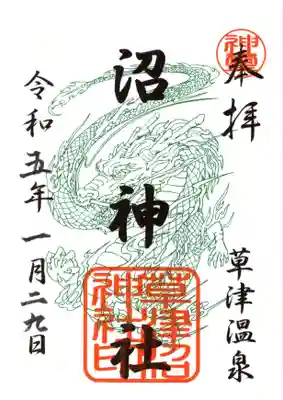 奉拝
草津温泉
沼神社
草津沼
神社印
令和五年一月二九日